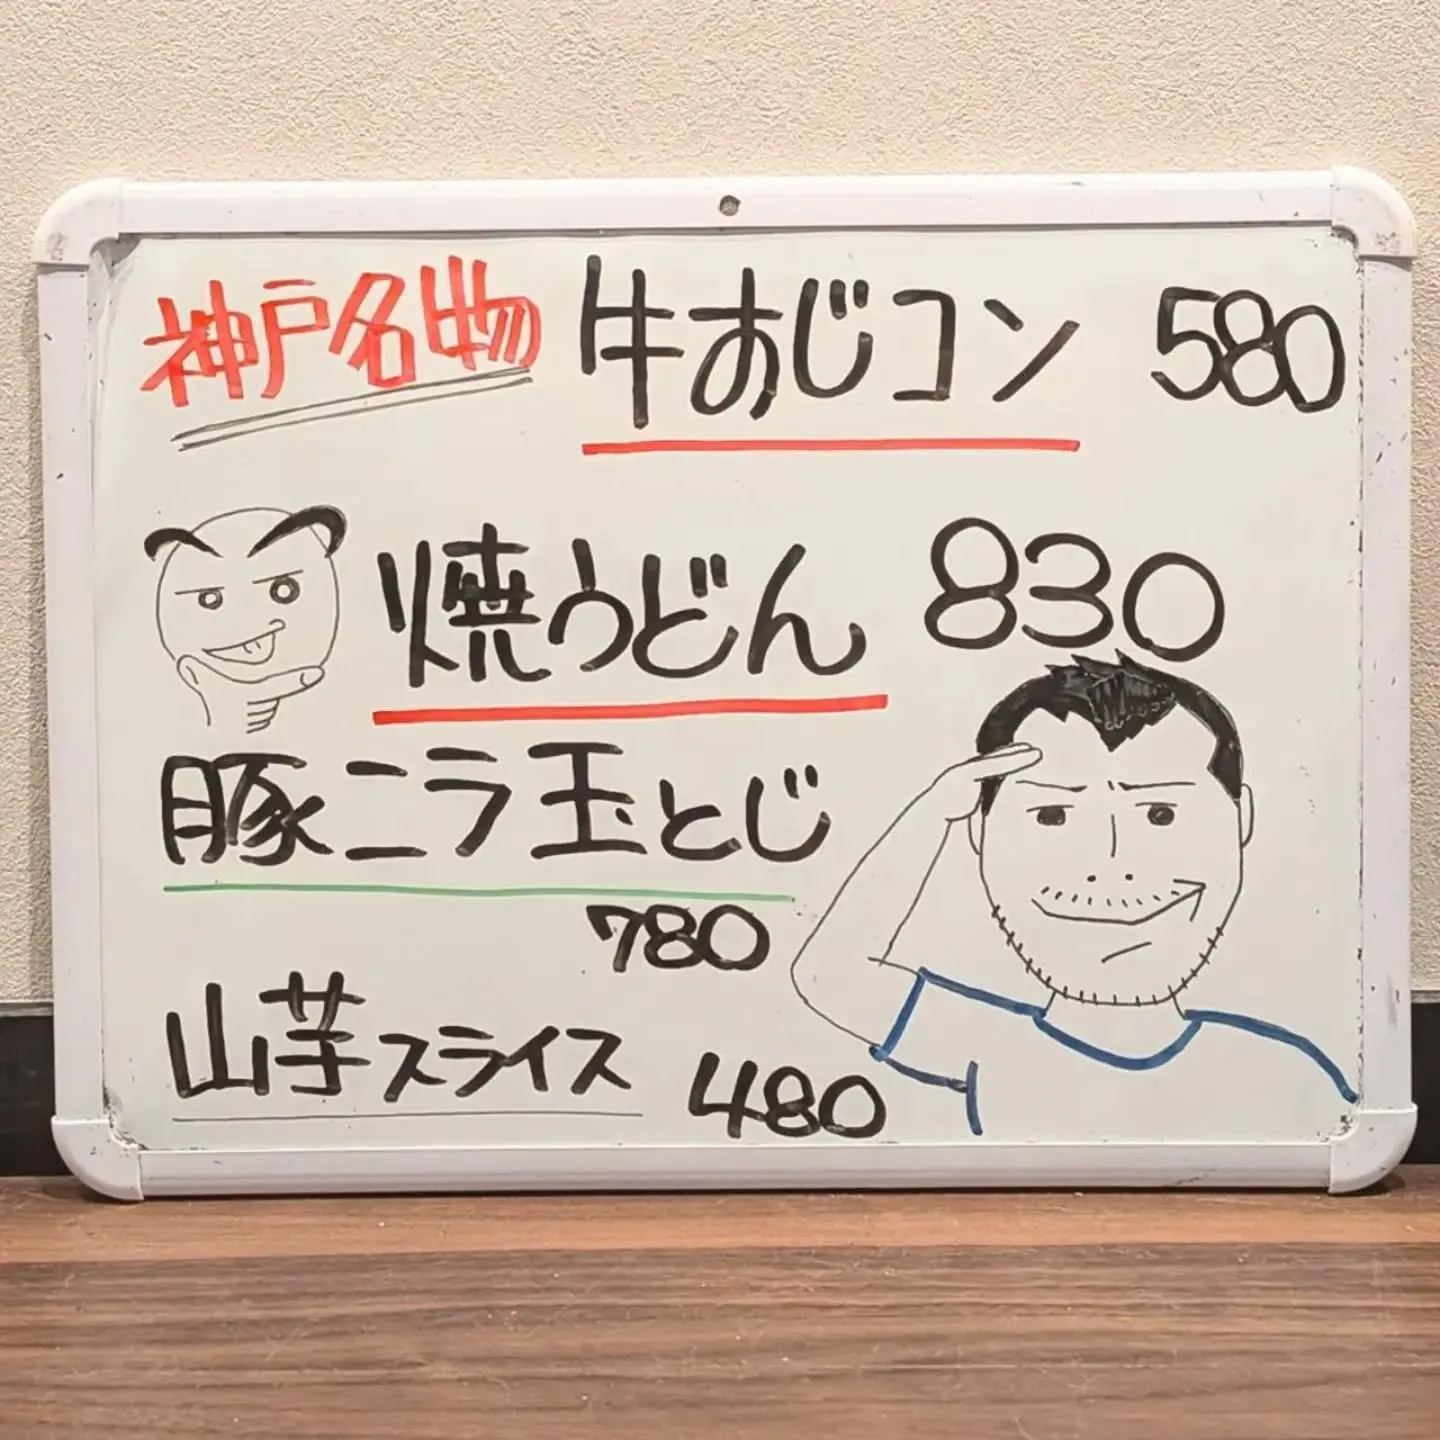 神戸名物 牛すじコン 580
焼うどん 830
豚ニラ玉とじ
780
山芋スライス 480